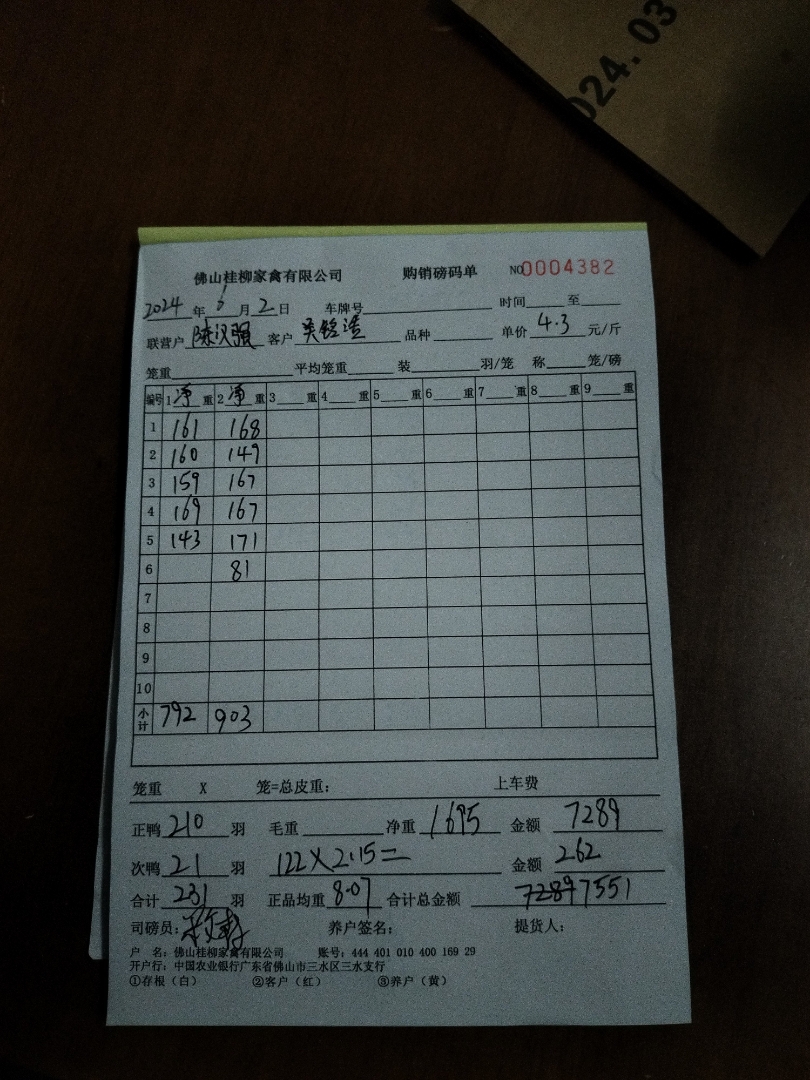 024.03
佛山桂柳家禽有限公司 购销磅码单 NO0004382
2024 年 6 月 2 日 车牌号 时间 至
联营户 陈汉强 客户 吴铭 品种 单价 4.3 元/斤
笼重 平均笼重 装 羽/笼 称 笼/磅
编号 1 净 重 2 净 重 3 重 4 重 5 重 6 重 7 重 8 重 9 重
1 161 168
2 160 149
3 159 167
4 169 167
5 143 171
6 81
7
8
9
10
小计 792 903
笼重 X 笼=总皮重： 上车费
正鸭 210 羽 毛重 净重 1695 金额 7289
次鸭 21 羽 122×2.15= 金额 262
合计 231 羽 正品均重 8.07 合计总金额 7289 7551
司磅员： 养户签名： 提货人：
户 名：佛山桂柳家禽有限公司 账号：444 401 010 400 169 29
开户行：中国农业银行广东省佛山市三水区三水支行
①存根（白） ②客户（红） ③养户（黄）